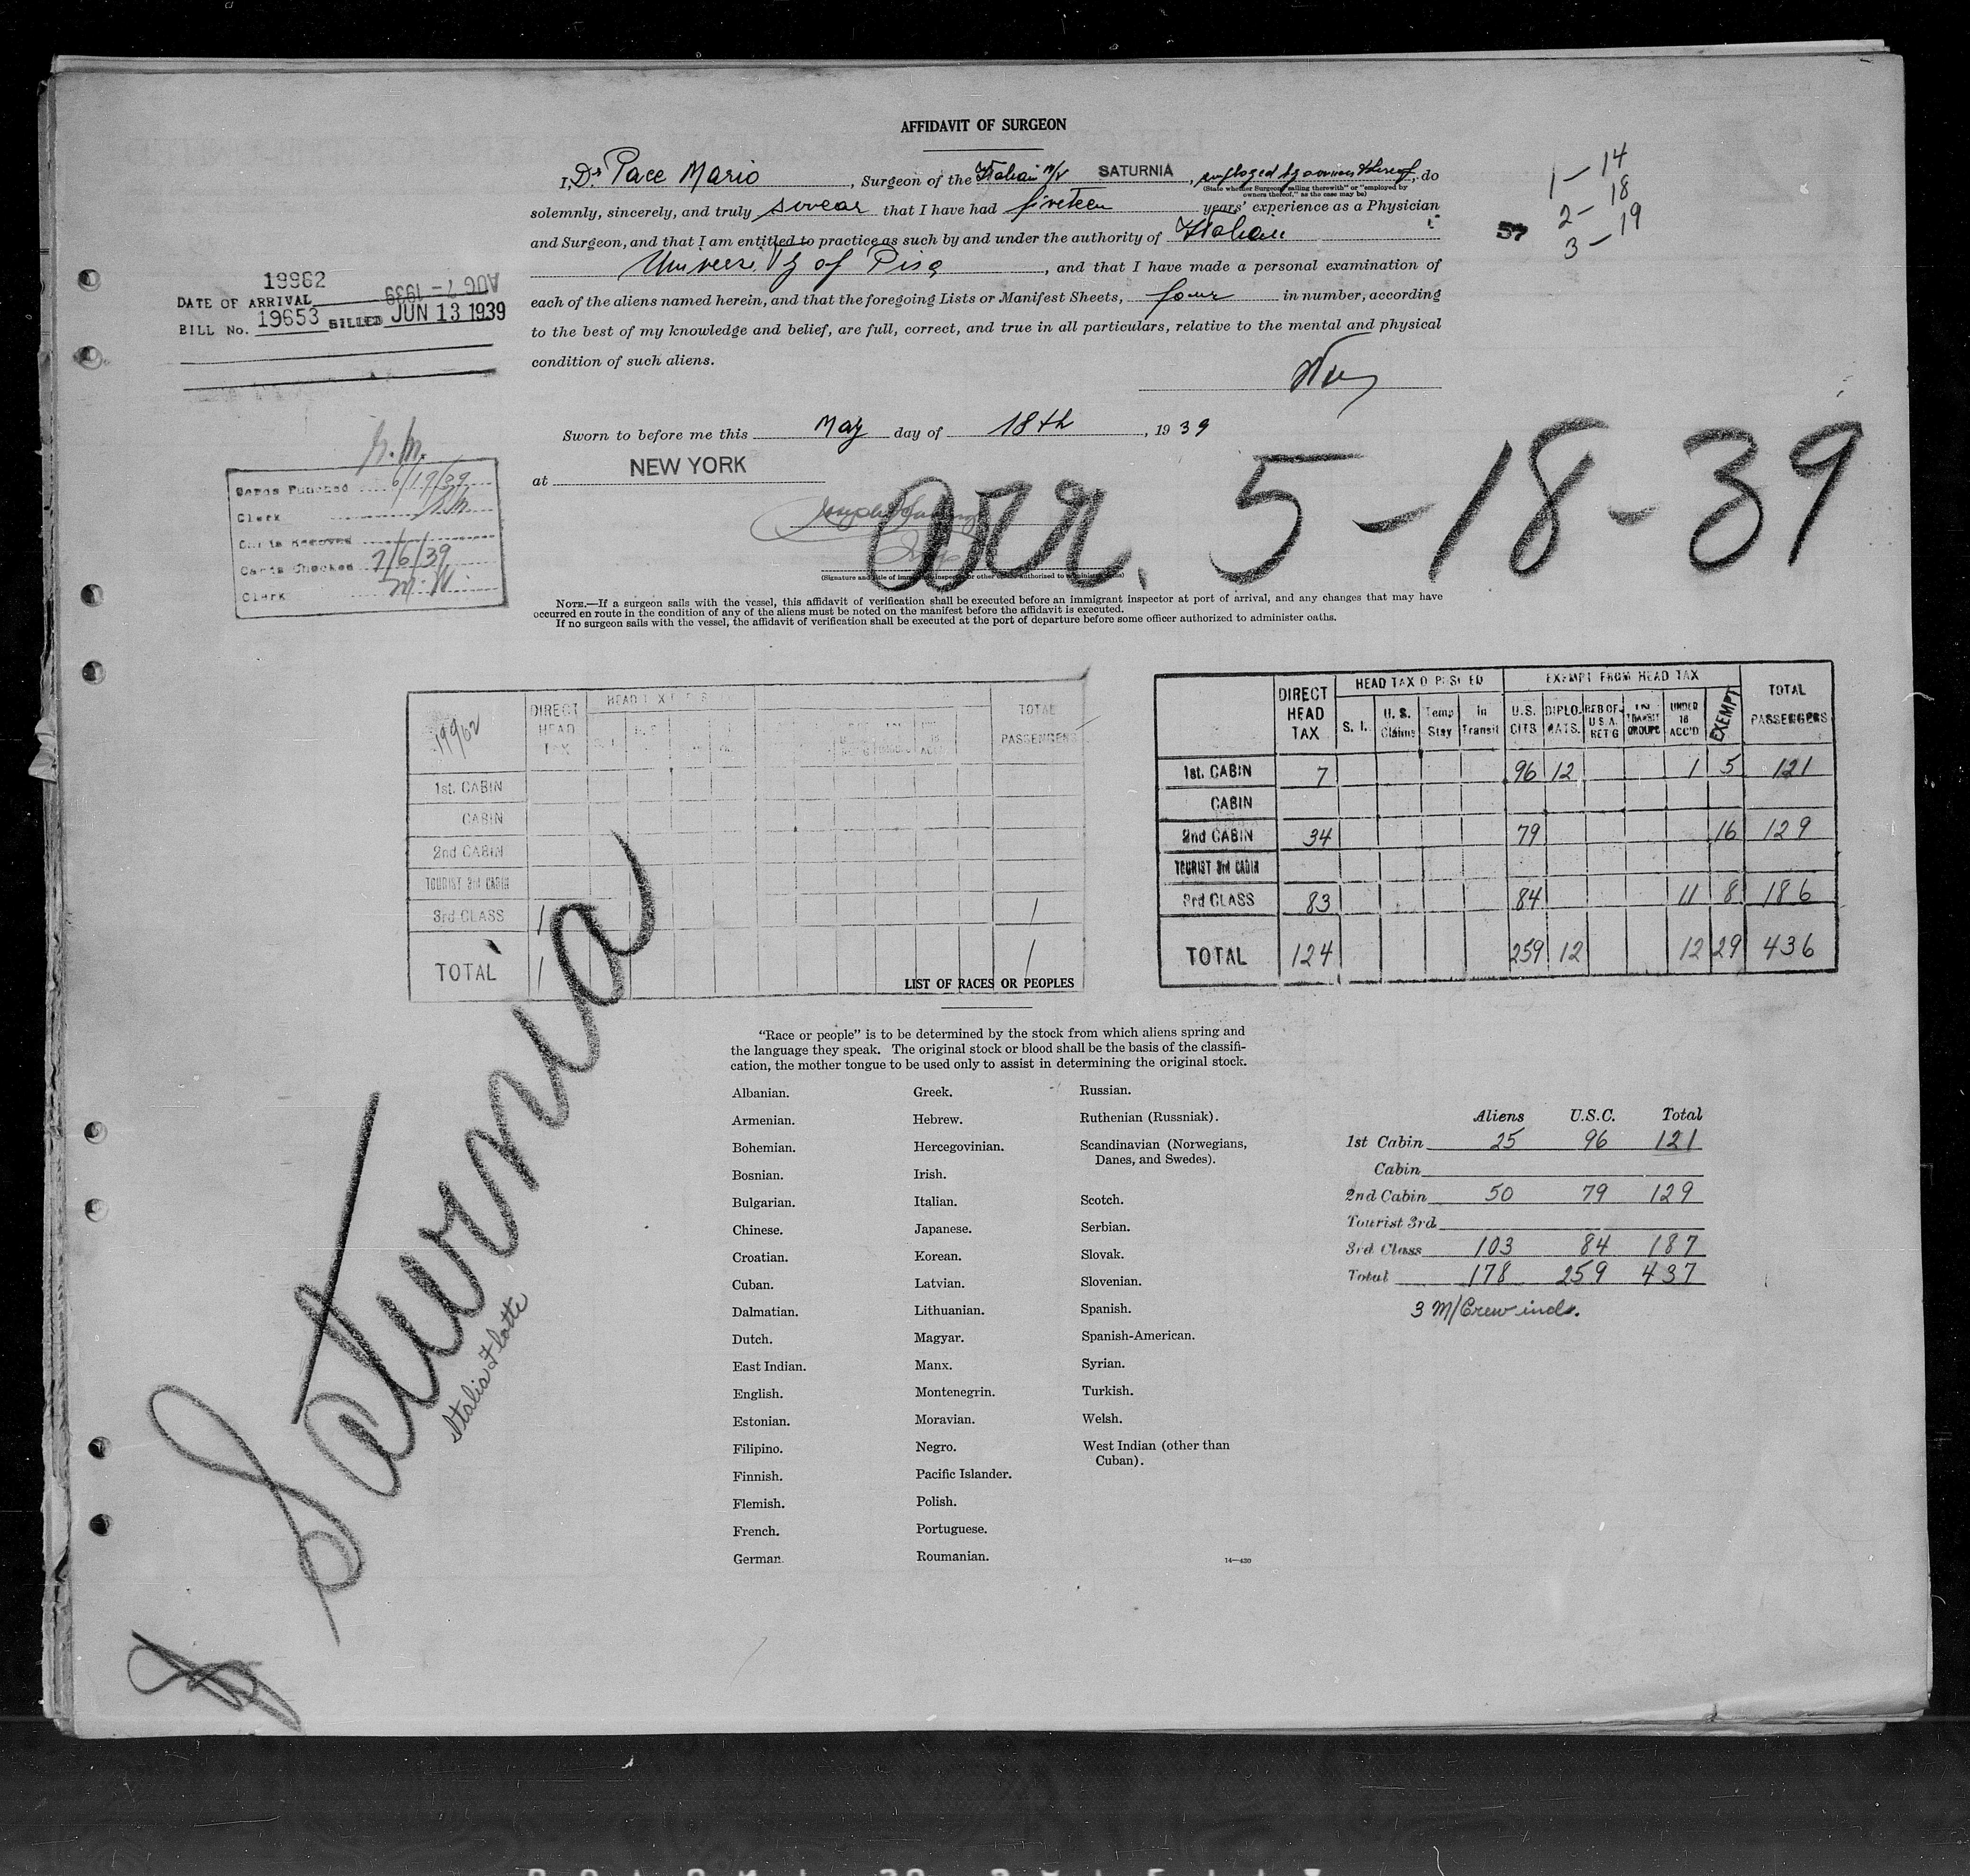 AFFIDAVIT OF SURGEON
I, Dr Pace Mario, Surgeon of the Italian M/V SATURNIA, employed by owners thereof, do
(State whether Surgeon "sailing therewith" or "employed by
owners thereof," as the case may be)
solemnly, sincerely, and truly swear that I have had fiveteen years' experience as a Physician
and Surgeon, and that I am entitled to practice as such by and under the authority of Italian
University of Pisa, and that I have made a personal examination of
each of the aliens named herein, and that the foregoing Lists or Manifest Sheets, four in number, according
to the best of my knowledge and belief, are full, correct, and true in all particulars, relative to the mental and physical
condition of such aliens.
1 - 14
2 - 18
57
3 - 19
19962
DATE OF ARRIVAL AUG 7 - 1939
BILL No. 19653 BILLED JUN 13 1939
Sworn to before me this May day of 18th, 1939
at NEW YORK
arr. 5-18-39
(Signature and title of immigrant inspector or other officer authorized to administer oaths)
Cards Punched 6/19/39
Clerk
Cards Removed
Cards Checked 7/6/39
Clerk M.W.
NOTE.—If a surgeon sails with the vessel, this affidavit of verification shall be executed before an immigrant inspector at port of arrival, and any changes that may have
occurred en route in the condition of any of the aliens must be noted on the manifest before the affidavit is executed.
If no surgeon sails with the vessel, the affidavit of verification shall be executed at the port of departure before some officer authorized to administer oaths.
19962 DIRECT HEAD TAX TOTAL PASSENGERS
1st. CABIN
CABIN
2nd CABIN
TOURIST 3rd CABIN
3rd CLASS 1 1
TOTAL 1 1
HEAD TAX DEPOSITED EXEMPT FROM HEAD TAX
DIRECT HEAD TAX S. I. U. S. Claims Temp Stay In Transit U.S. CITS DIPLOMATS. RES OF U.S.A. RET'G TRANSIT GROUPS UNDER 16 ACC'D EXEMPT TOTAL PASSENGERS
1st. CABIN 7 96 12 1 5 121
CABIN
2nd CABIN 34 79 16 129
TOURIST 3rd CABIN
3rd CLASS 83 84 11 8 186
TOTAL 124 259 12 12 29 436
Saturnia
Italia Flotte
LIST OF RACES OR PEOPLES
"Race or people" is to be determined by the stock from which aliens spring and
the language they speak. The original stock or blood shall be the basis of the classifi-
cation, the mother tongue to be used only to assist in determining the original stock.
Albanian.
Armenian.
Bohemian.
Bosnian.
Bulgarian.
Chinese.
Croatian.
Cuban.
Dalmatian.
Dutch.
East Indian.
English.
Estonian.
Filipino.
Finnish.
Flemish.
French.
German.
Greek.
Hebrew.
Hercegovinian.
Irish.
Italian.
Japanese.
Korean.
Latvian.
Lithuanian.
Magyar.
Manx.
Montenegrin.
Moravian.
Negro.
Pacific Islander.
Polish.
Portuguese.
Roumanian.
Russian.
Ruthenian (Russniak).
Scandinavian (Norwegians,
Danes, and Swedes).
Scotch.
Serbian.
Slovak.
Slovenian.
Spanish.
Spanish-American.
Syrian.
Turkish.
Welsh.
West Indian (other than
Cuban).
14—430
Aliens U.S.C. Total
1st Cabin 25 96 121
Cabin
2nd Cabin 50 79 129
Tourist 3rd
3rd Class 103 84 187
Total 178 259 437
3 M/Crew incl.